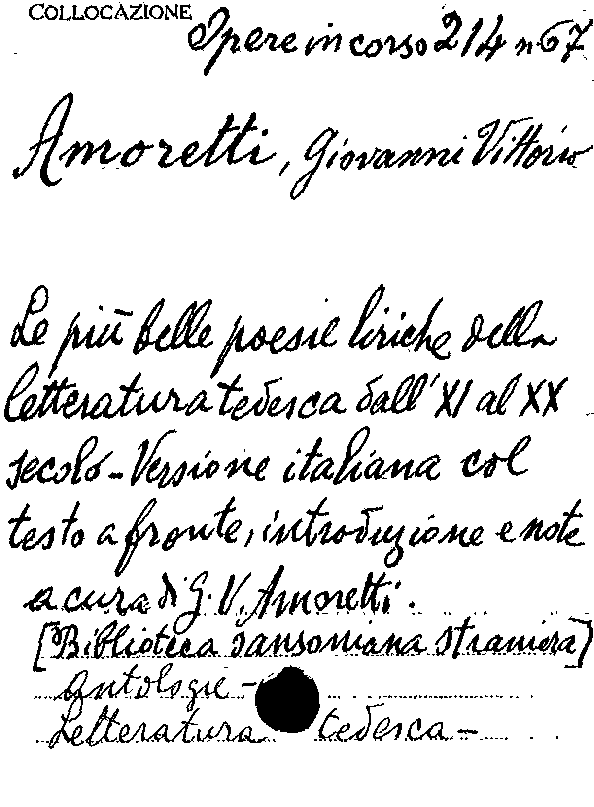 COLLOCAZIONE
Opere in corso 214 n. 67
Amoretti, Giovanni Vittorio
Le più belle poesie liriche della
letteratura tedesca dall'XI al XX
secolo - Versione italiana col
testo a fronte, introduzione e note
a cura di G. V. Amoretti.
[Biblioteca sansoniana straniera]
Antologie -
Letteratura tedesca -